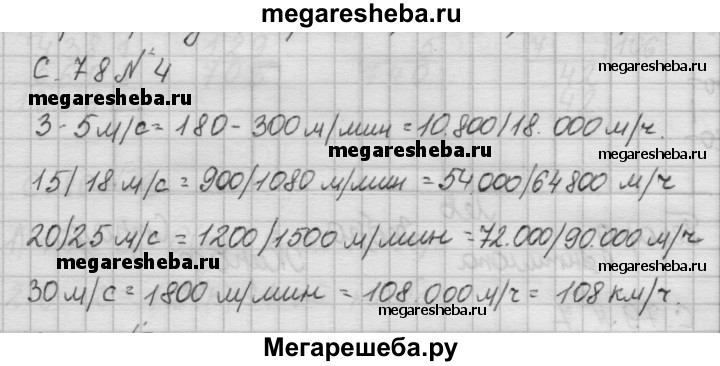 megaresheba.ru
С. 78 № 4
megaresheba.ru
megaresheba.ru
3 - 5 м/с = 180 - 300 м/мин = 10.800/18.000 м/ч.
megaresheba.ru
15/18 м/с = 900/1080 м/мин = 54000/64800 м/ч
20/25 м/с = 1200/1500 м/мин = 72.000/90.000 м/ч
megaresheba.ru
megaresheba.ru
30 м/с = 1800 м/мин = 108.000 м/ч = 108 км/ч.
megaresheba.ru
Мегарешеба.ру